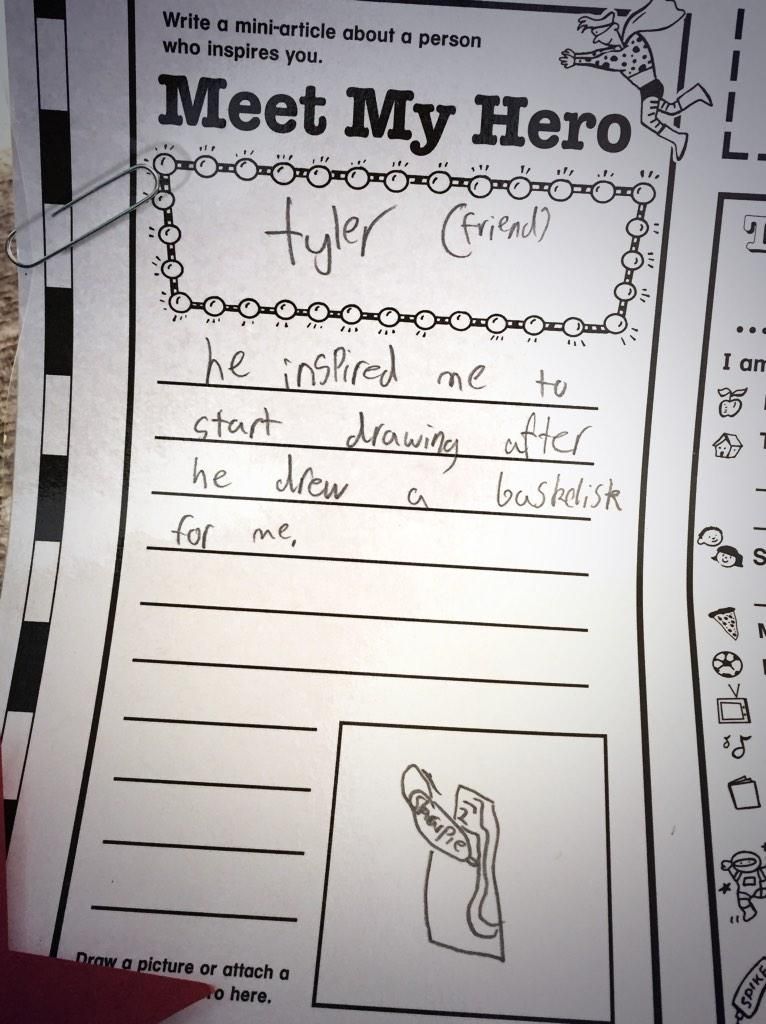 Write a mini-article about a person
who inspires you.
Meet My Hero
tyler (friend)
he inspired me to
start drawing after
he drew a baskelisk
for me.
Draw a picture or attach a
here.
I am
SPIKE